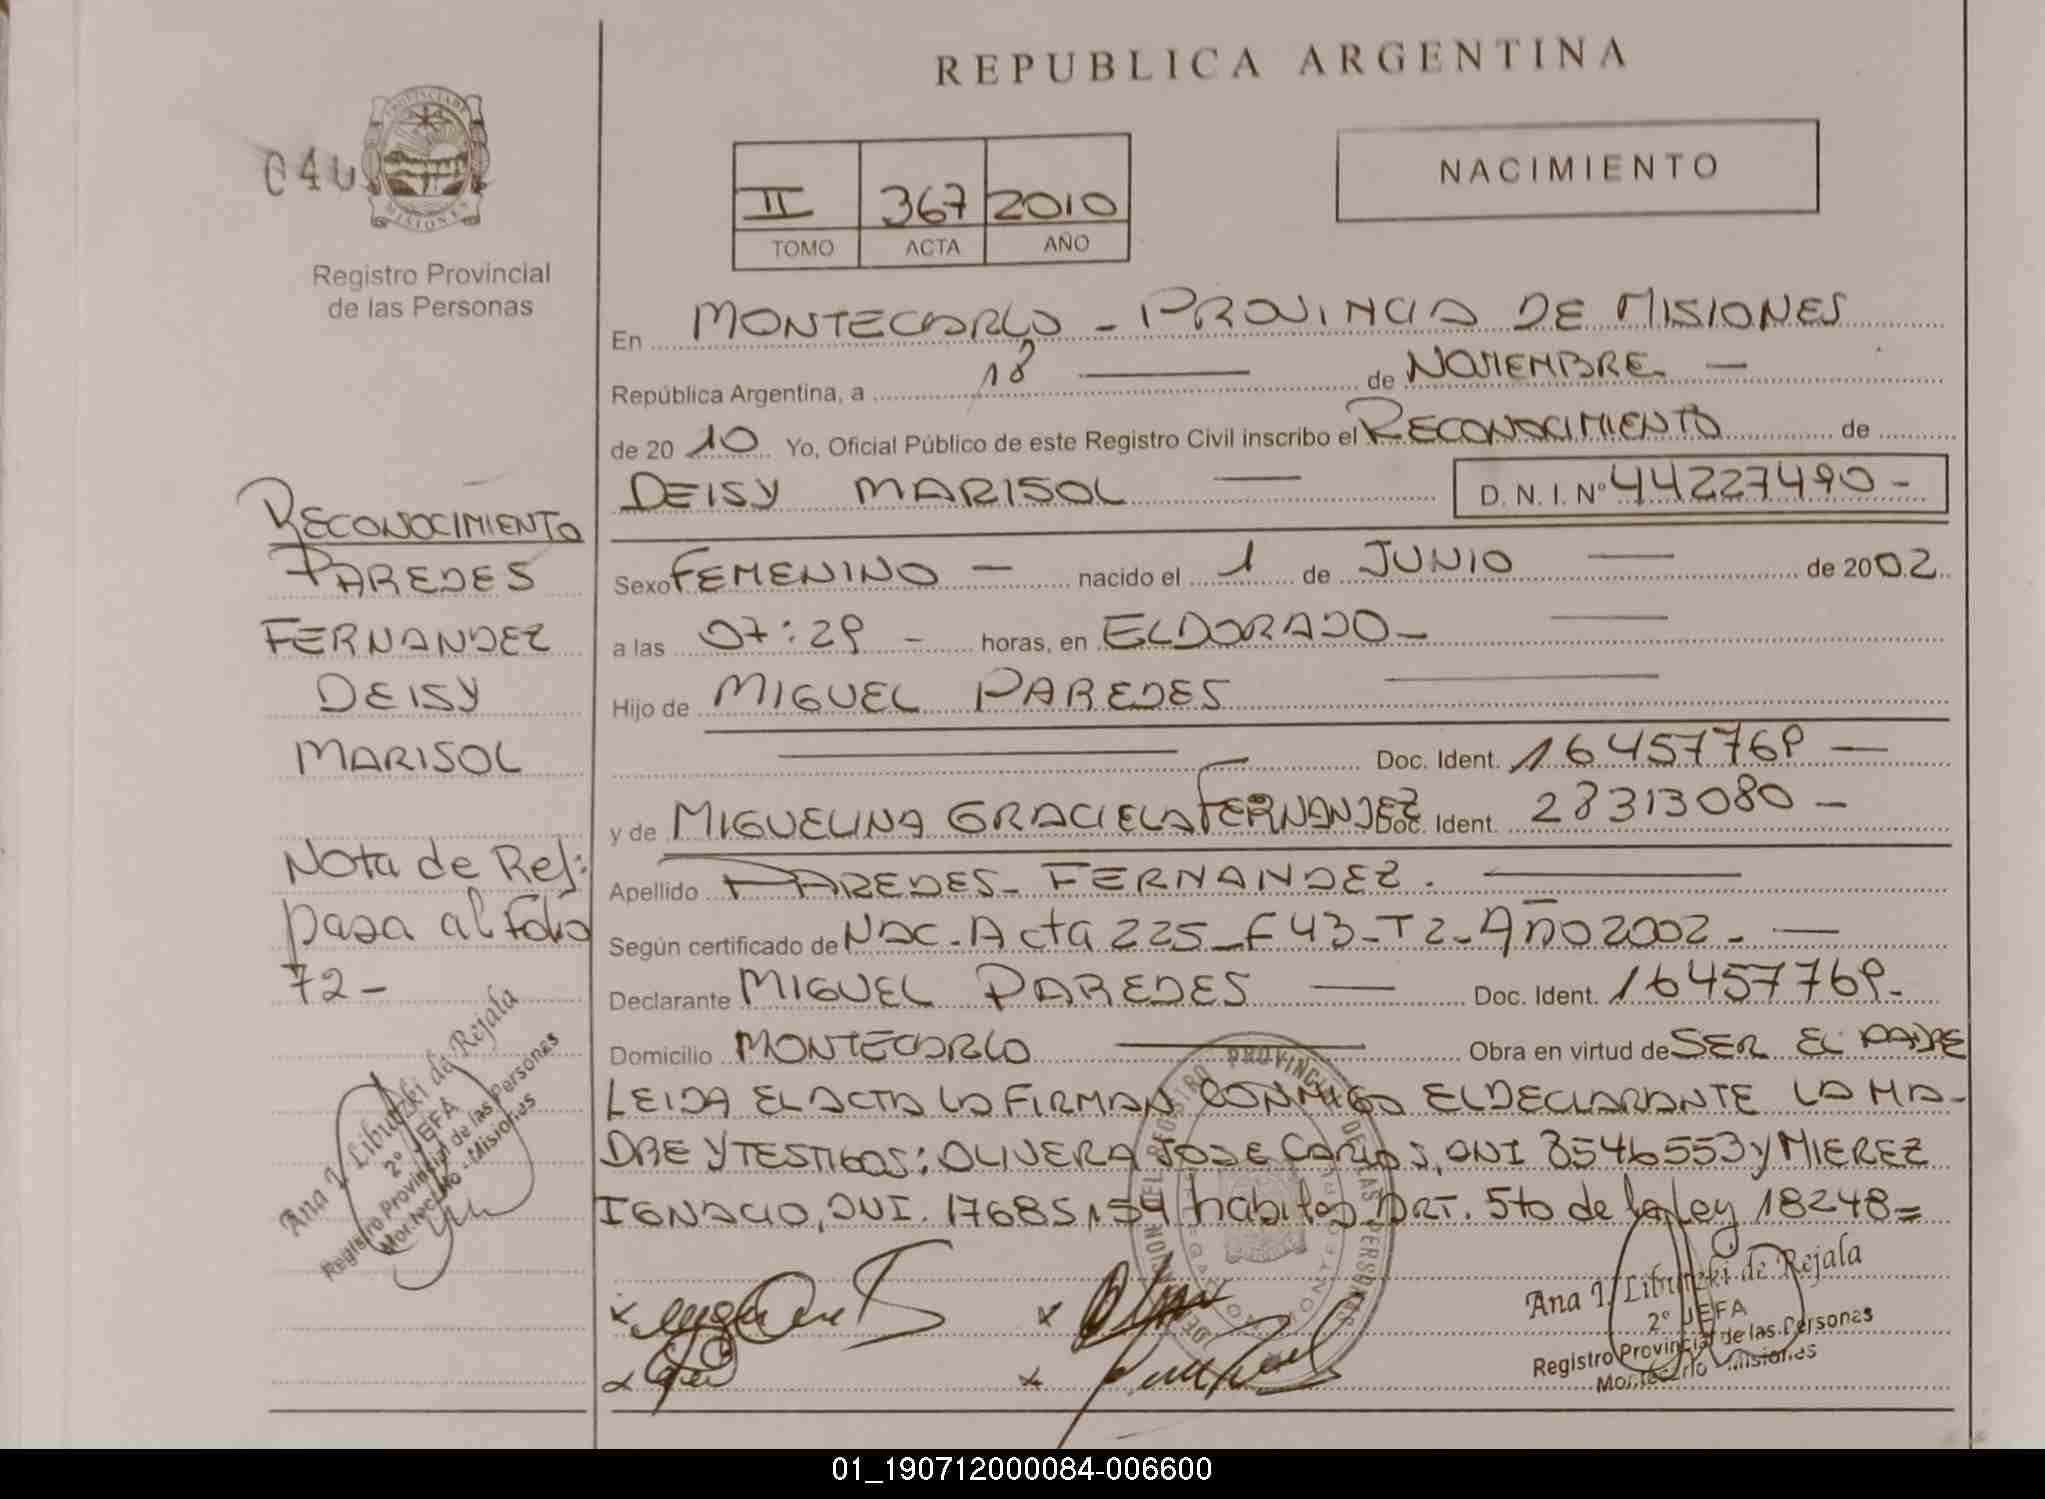 REPUBLICA ARGENTINA
NACIMIENTO
040
PROVINCIA DE
MISIONES
Registro Provincial
de las Personas
II 367 2010
TOMO ACTA AÑO
En MONTECARLO - PROVINCIA DE MISIONES
República Argentina, a 18 de NOVIEMBRE -
de 2010 Yo, Oficial Público de este Registro Civil inscribo el RECONOCIMIENTO de
DEISY MARISOL D. N. I. Nº 44227490-
Sexo FEMENINO - nacido el 1 de JUNIO de 2002
a las 07:29 - horas, en ELDORADO-
Hijo de MIGUEL PAREDES
Doc. Ident. 16457769 -
y de MIGUELINA GRACIELA FERNANDEZ Doc. Ident. 28313080 -
Apellido PAREDES- FERNANDEZ.
Según certificado de NAC. Acta 225_F 43_T 2_Año 2002 -
Declarante MIGUEL PAREDES Doc. Ident. 16457769-
Domicilio MONTECARLO Obra en virtud de SER EL PADRE
LEIDA EL ACTA LA FIRMAN CONMIGO EL DECLARANTE LA MA-
DRE Y TESTIGOS: OLIVERA JOSE CARLOS, DNI 8546553 y MIEREZ
IGNACIO, DNI. 17685154 ART. 5to de la Ley 18248=
RECONOCIMIENTO
PAREDES
FERNANDEZ
DEISY
MARISOL
Nota de Ref:
pasa al Folio
72-
Ana I. Libutzki de Rejala
2º JEFA
Registro Provincial de las Personas
Montecarlo - Misiones
Ana I. Libutzki de Rejala
2º JEFA
Registro Provincial de las Personas
Montecarlo Misiones
01_190712000084-006600